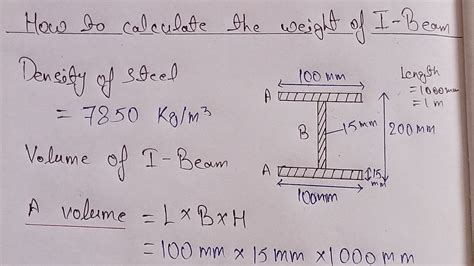 How to calculate the weight of I-Beam
Density of steel
= 7850 Kg/m³
Volume of I-Beam
A volume = L×B×H
= 100 mm × 15 mm × 1000 mm
100 mm
A
B
15 mm
200 mm
A
15 mm
100mm
Length
= 1000mm
= 1m